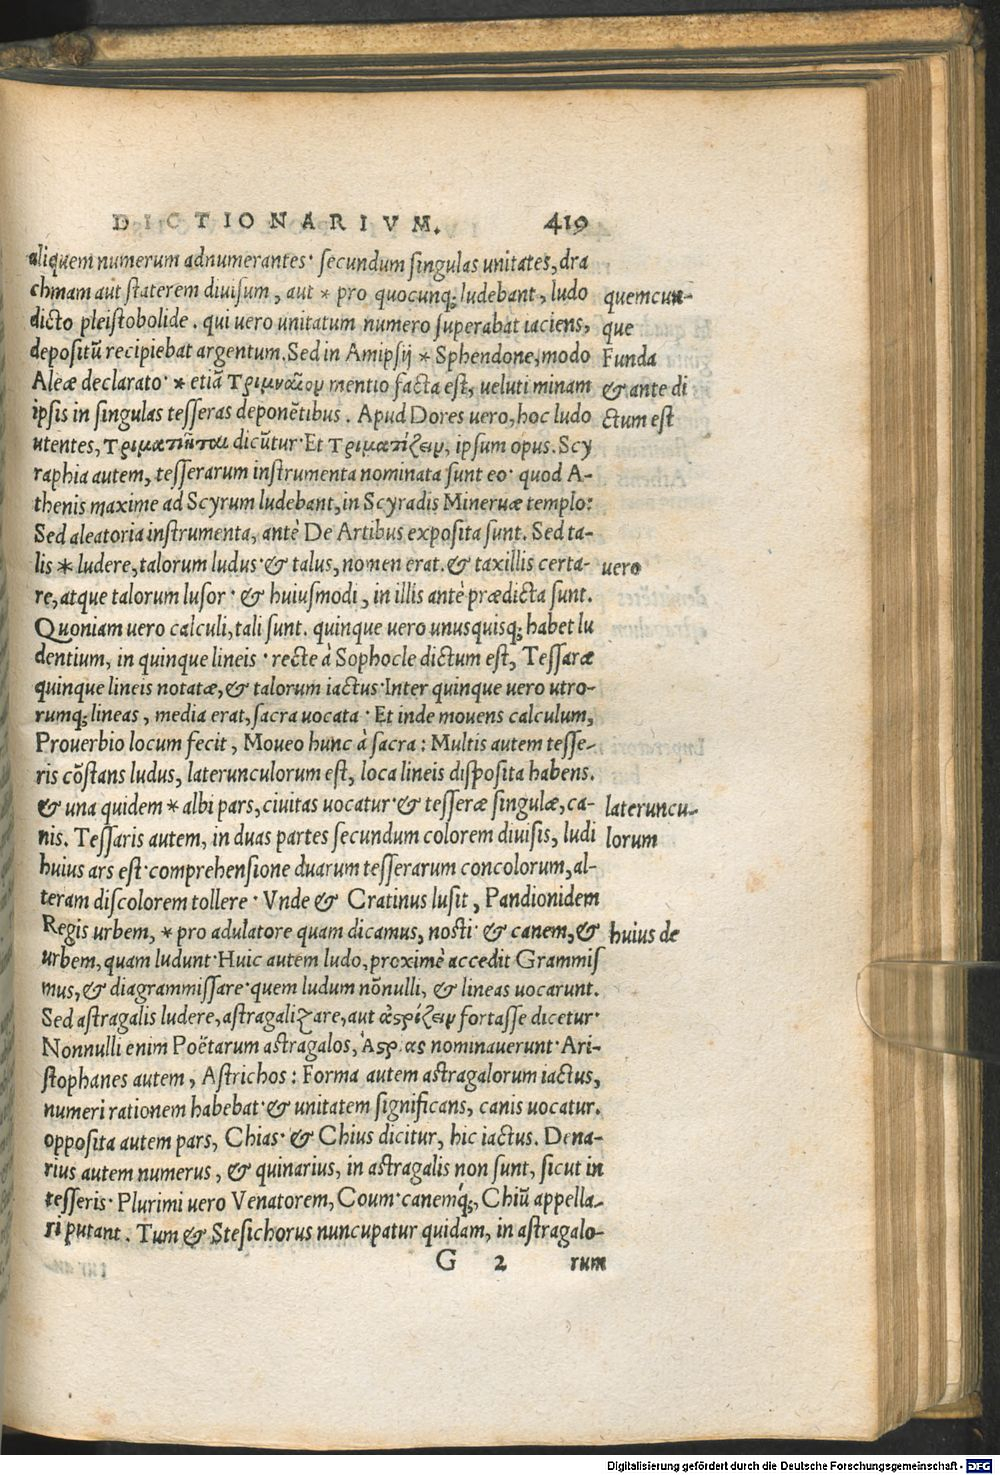 DICTIONARIVM. 419
aliquem numerum adnumerantes· secundum singulas unitates, dra
chmam aut staterem diuisum, aut * pro quocunq; ludebant, ludo
quemcun-
dicto pleistobolide. qui uero unitatum numero superabat iaciens,
que
depositū recipiebat argentum. Sed in Amipsij * Sphendone, modo
Funda
Aleæ declarato· * etiā mentio facta est, ueluti minam
& ante di
ipsis in singulas tesseras deponētibus. Apud Dores uero, hoc ludo
ctum est
utentes, dicūtur· Et ipsum opus. Scy
raphia autem, tesserarum instrumenta nominata sunt eo· quod A-
thenis maxime ad Scyrum ludebant, in Scyradis Mineruæ templo:
Sed aleatoria instrumenta, antè De Artibus exposita sunt. Sed ta-
lis * ludere, talorum ludus· & talus, nomen erat. & taxillis certa-
uero
re, atque talorum lusor· & huiusmodi, in illis antè prædicta sunt.
Quoniam uero calculi, tali sunt. quinque uero unusquisq; habet lu
dentium, in quinque lineis· recte à Sophocle dictum est, Tessaræ
quinque lineis notatæ, & talorum iactus· Inter quinque uero utro-
rumq; lineas, media erat, sacra uocata· Et inde mouens calculum,
Prouerbio locum fecit, Moueo hunc à sacra: Multis autem tesse-
ris cōstans ludus, laterunculorum est, loca lineis disposita habens.
& una quidem * albi pars, ciuitas uocatur· & tesseræ singulæ, ca-
lateruncu-
nis. Tessaris autem, in duas partes secundum colorem diuisis, ludi
lorum
huius ars est· comprehensione duarum tesserarum concolorum, al-
teram discolorem tollere· Vnde & Cratinus lusit, Pandionidem
Regis urbem, * pro adulatore quam dicamus, nosti· & canem, &
huius de
urbem, quam ludunt· Huic autem ludo, proximè accedit Grammis
mus, & diagrammissare· quem ludum nōnulli, & lineas uocarunt.
Sed astragalis ludere, astragalizare, aut ἀςρίζειν fortasse dicetur·
Nonnulli enim Poëtarum astragalos, nominauerunt· Ari-
stophanes autem, Astrichos: Forma autem astragalorum iactus,
numeri rationem habebat· & unitatem significans, canis uocatur.
opposita autem pars, Chias· & Chius dicitur, hic iactus. Dena-
rius autem numerus, & quinarius, in astragalis non sunt, sicut in
tesseris· Plurimi uero Venatorem, Coum· canemq́;, Chiū appella-
ri putant. Tum & Stesichorus nuncupatur quidam, in astragalo-
G 2 rum
Digitalisierung gefördert durch die Deutsche Forschungsgemeinschaft - DFG